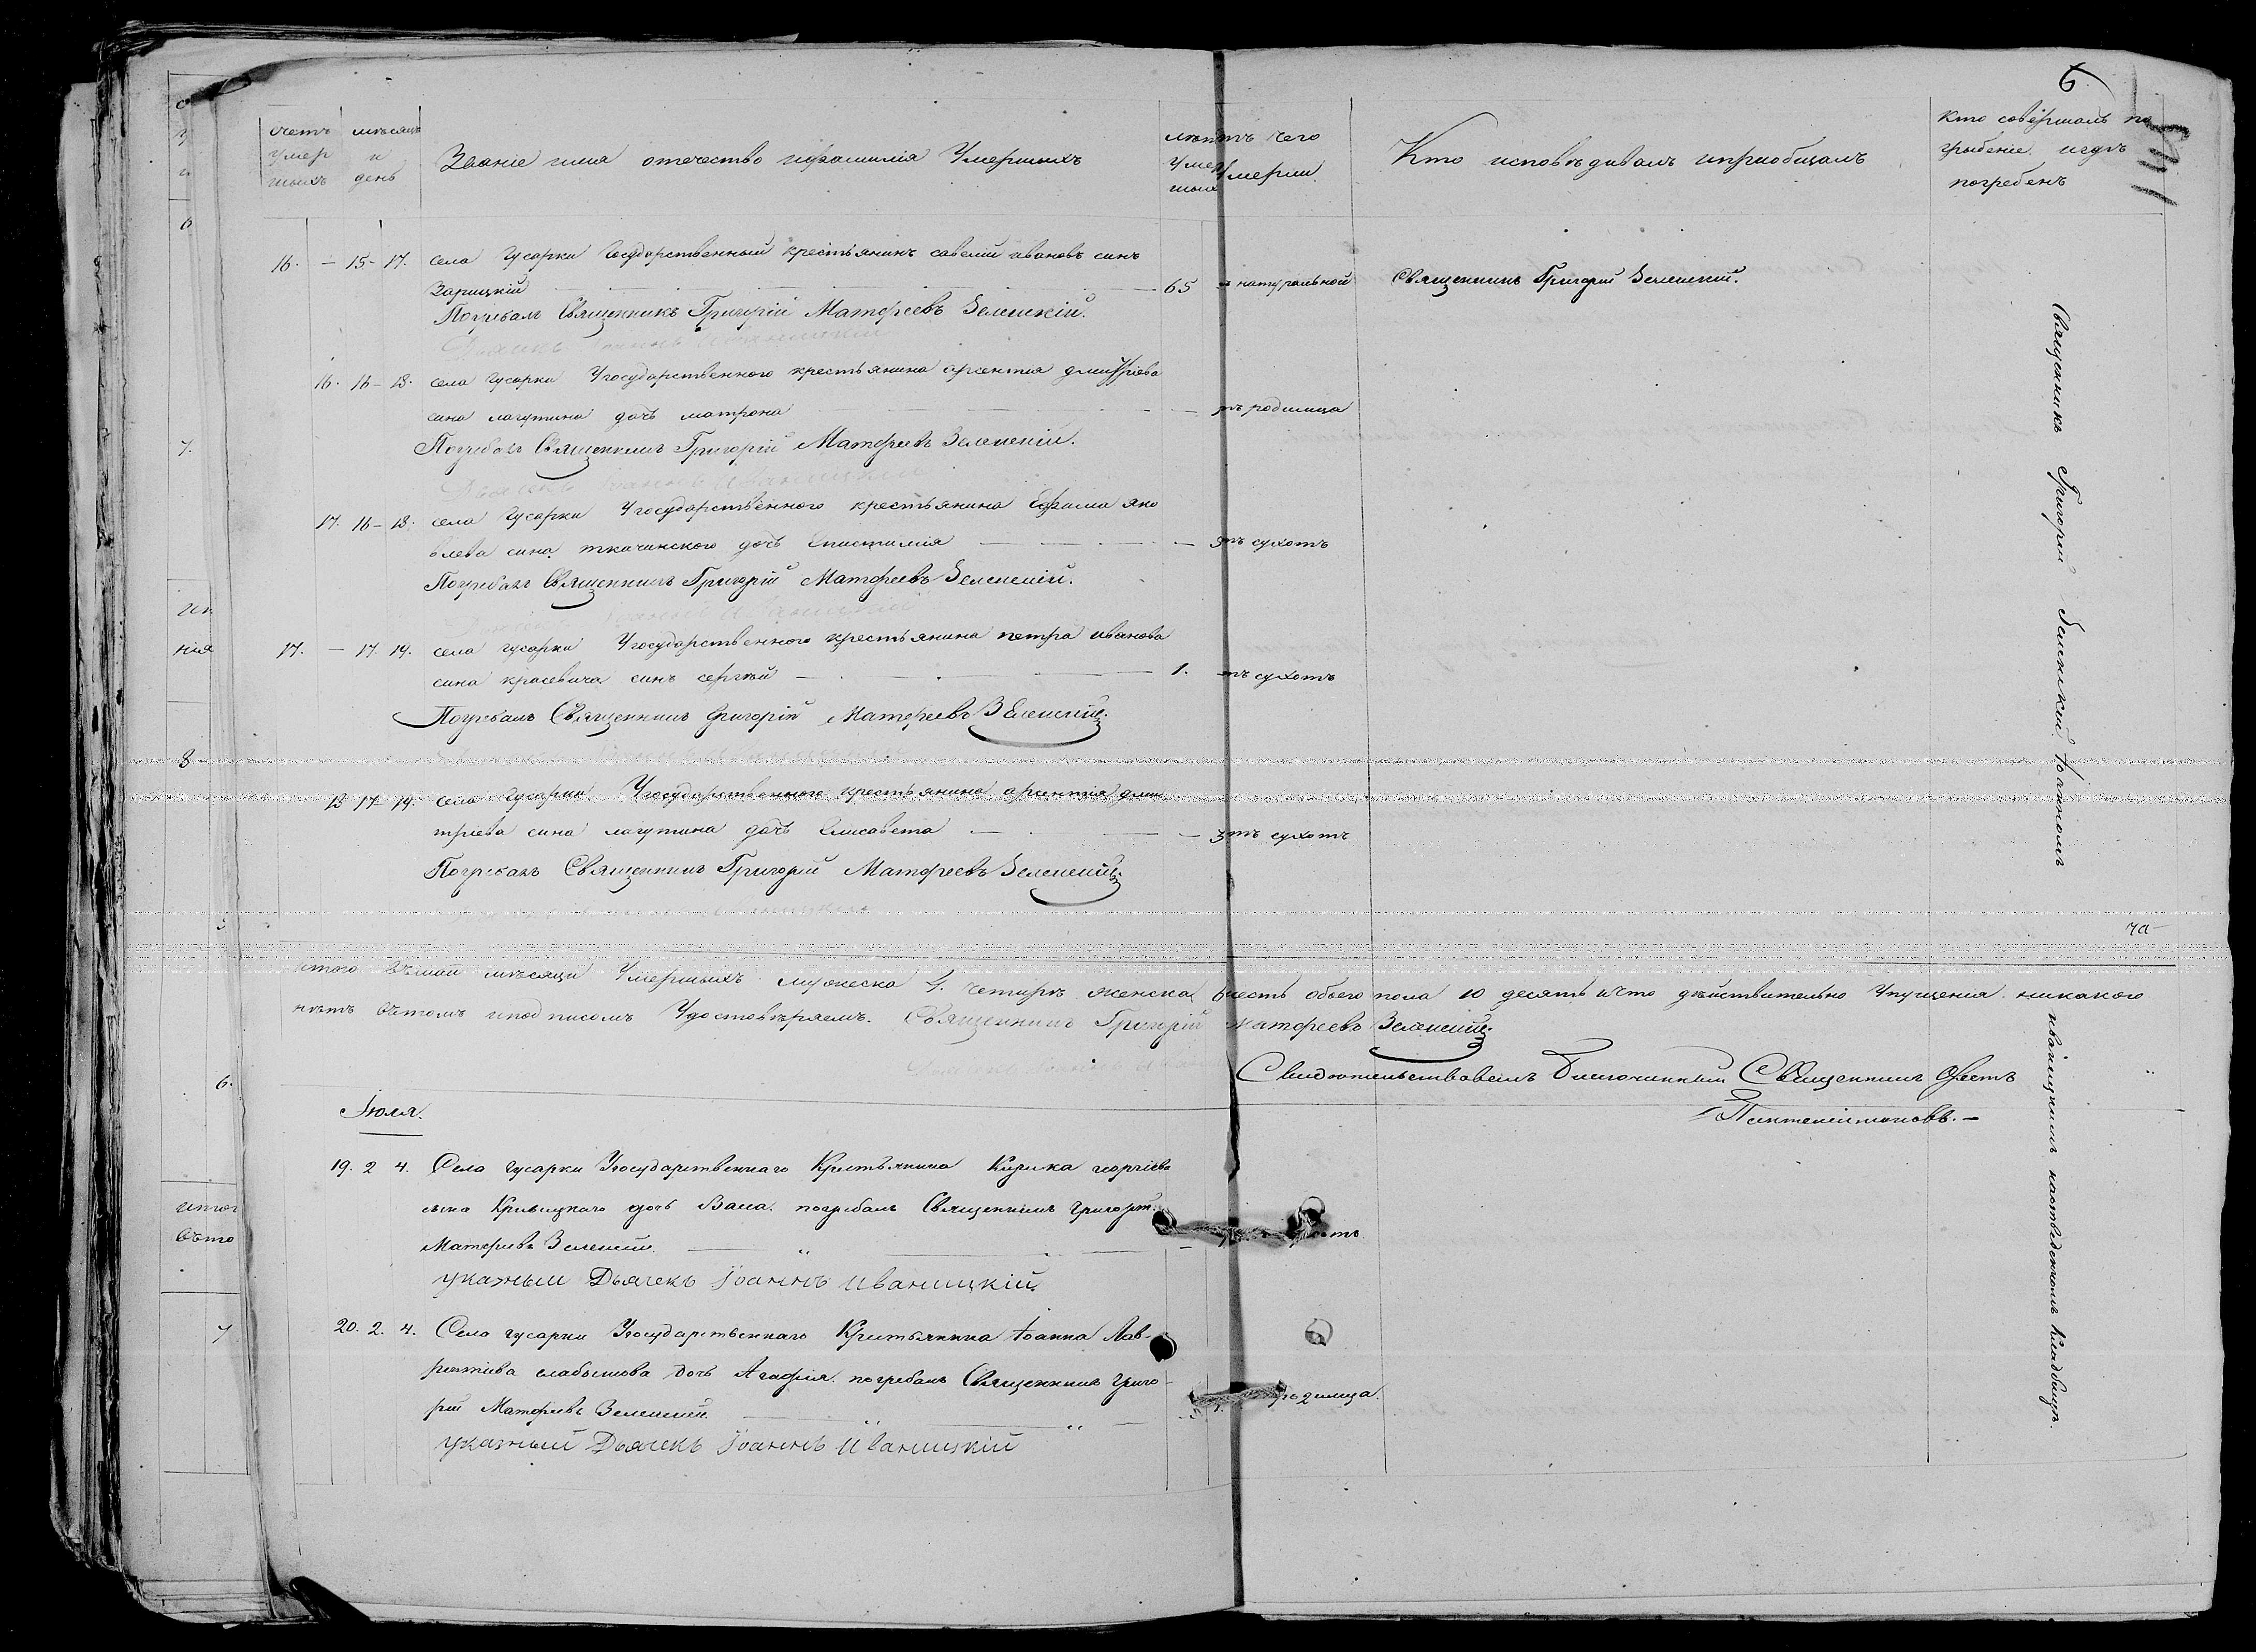 6
счетъ умер шыхъ
мѣсяцъ и день
Званіе имя отечество ифамилія Умершыхъ
лѣтъ Умер шыхъ
отъ чего Умерли
Кто исповѣдивалъ ипріобщалъ
кто совершалъ по
гребеніе игдѣ
погребенъ
16. — 15 - 17. села Гусарки Государственный крестьянинъ савелій ивановъ синъ
Зарицкій — 65 натуральной Священникъ Григорій Зеленскій.
Погребалъ Священникъ Григорій Матфеевъ Зеленскій.
16. 16 - 18. села Гусарки Угосударственного крестьянина арсентия дмитріева
сина лагутина дочъ матрона — родимца
Погребалъ Священникъ Григорій Матфеевъ Зеленскій.
17. 16 - 18. села Гусарки Угосударственного крестьянина Ефима яко
влева сина ткачинского дочъ Епистимия — сухотъ
Погребалъ Священникъ Григорій Матфеевъ Зеленскій.
17. — 17. 19. села гусарки Угосударственного крестьянина петра иванова
сина красевича синъ сергѣй — 1. отъ сухотъ
Погребалъ Священникъ Григорій Матфеевъ Зеленский.
18 17 - 19. села гусарки Угосударственного крестьянина арсентія дми
тріева сина лагутина дочъ Елисавета — 3 отъ сухотъ
Погребалъ Священникъ Григорій Матфеевъ Зеленский.
итого вэмаи мѣсяци Умершыхъ мужеска 4. четыре женска 6 шесть обоего пола 10 десять ичто дѣйствительно Упущенія никакого
нѣтъ вътомъ иподписомъ Удостовѣряемъ. Священникъ Григорій Матфеевъ Зеленский.
Свидѣтельствовалъ Благочинный Священникъ Орестъ
Пантелеимоновъ. —
Іюля.
19. 2 4. Села гусарки Угосударственнаго Крестьянина Кирика георгіева
сына Кривицкаго дочь Васа. погребалъ Священникъ Григорій
Матфеевъ Зеленский.
указный Дьячекъ Іоаннъ Иваницкій.
20. 2. 4. Села гусарки Угосударственнаго Крестьянина Іоанна Лав-
рентіева слабынова дочь Агафія. погребалъ Священникъ Григо-
рій Матфеевъ Зеленский. родимца.
указный Дьячекъ Іоаннъ Иваницкій
Священникъ Григорій Зеленскій, дьячкомъ
иваницкимъ наотведенномъ кладбищѣ.